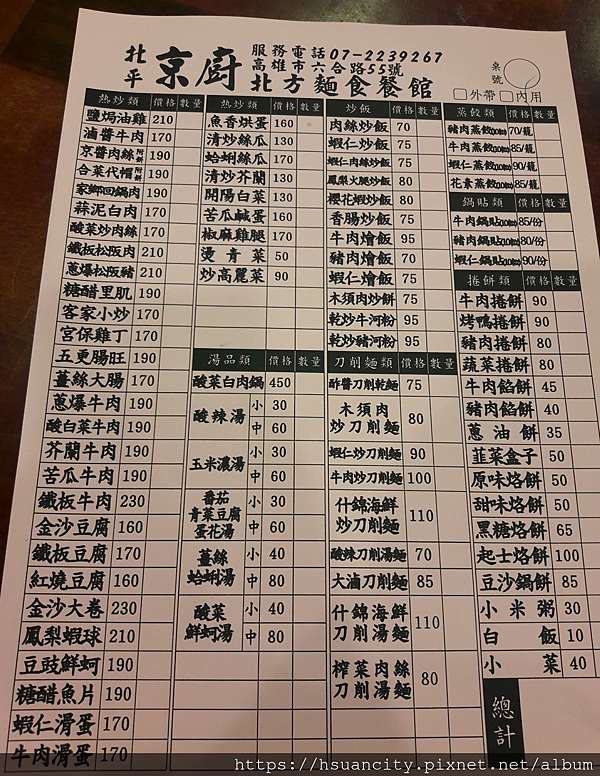 北平 京廚 北方麵食餐館
服務電話07-2239267
高雄市六合路55號
桌號
□外帶 □內用
熱炒類 價格 數量
鹽焗油雞 210
滷醬牛肉 170
京醬肉絲 190
合菜代帽 190
家鄉回鍋肉 190
蒜泥白肉 170
酸菜炒肉絲 170
鐵板松阪肉 210
蔥爆松阪豬 210
糖醋里肌 190
客家小炒 170
宮保雞丁 170
五更腸旺 190
薑絲大腸 170
蔥爆牛肉 190
酸白菜牛肉 190
芥蘭牛肉 190
苦瓜牛肉 190
鐵板牛肉 230
金沙豆腐 160
鐵板豆腐 170
紅燒豆腐 160
金沙大卷 230
鳳梨蝦球 210
豆豉鮮蚵 190
糖醋魚片 190
蝦仁滑蛋 170
牛肉滑蛋 170
熱炒類 價格 數量
魚香烘蛋 160
清炒絲瓜 130
蛤蜊絲瓜 170
清炒芥蘭 130
開陽白菜 130
苦瓜鹹蛋 160
椒麻雞腿 170
燙青菜 50
炒高麗菜 90
湯品類 價格 數量
酸菜白肉鍋 450
酸辣湯 小 30
中 60
玉米濃湯 小 30
中 60
番茄
青菜豆腐
蛋花湯
小 30
中 60
薑絲
蛤蜊湯
小 40
中 80
酸菜
鮮蚵湯
小 40
中 80
炒飯 價格 數量
肉絲炒飯 70
蝦仁炒飯 75
蝦仁肉絲炒飯 75
鳳梨火腿炒飯 80
櫻花蝦炒飯 80
香腸炒飯 75
牛肉燴飯 95
豬肉燴飯 70
蝦仁燴飯 75
木須肉炒餅 75
乾炒牛河粉 95
乾炒豬河粉 95
刀削麵類 價格 數量
酢醬刀削乾麵 75
木須肉
炒刀削麵
80
蝦仁炒刀削麵 90
牛肉炒刀削麵 100
什錦海鮮
炒刀削麵
110
酸辣刀削湯麵 70
大滷刀削麵 85
什錦海鮮
刀削湯麵
110
榨菜肉絲
刀削湯麵
80
蒸餃類 價格 數量
豬肉蒸餃(10顆) 70/籠
牛肉蒸餃(10顆) 85/籠
蝦仁蒸餃(10顆) 90/籠
花素蒸餃(10顆) 85/籠
鍋貼類 價格 數量
牛肉鍋貼(10顆) 85/份
豬肉鍋貼(10顆) 80/份
蝦仁鍋貼(10顆) 90/份
捲餅類 價格 數量
牛肉捲餅 90
烤鴨捲餅 90
豬肉捲餅 80
蔬菜捲餅 80
牛肉餡餅 45
豬肉餡餅 40
蔥油餅 35
韮菜盒子 50
原味烙餅 50
甜味烙餅 50
黑糖烙餅 65
起士烙餅 100
豆沙鍋餅 85
小米粥 30
白飯 10
小菜 40
總計
https://hsuancity.pixnet.net/album